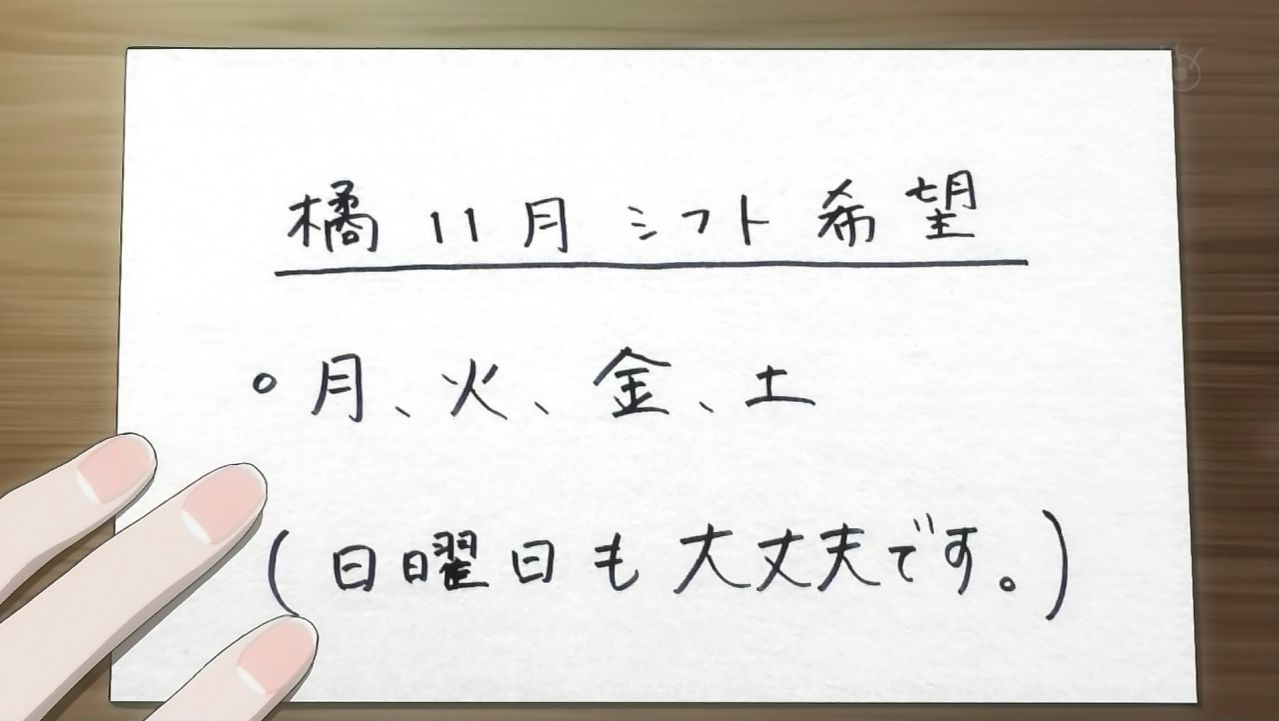 橘 11月 シフト 希望
○ 月、火、金、土
(日曜日も大丈夫です。)